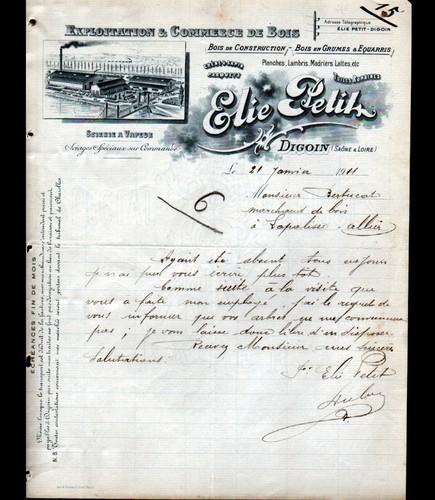 15
Adresse Télégraphique
ELIE PETIT-DIGOIN
EXPLOITATION & COMMERCE DE BOIS
BOIS DE CONSTRUCTION, BOIS EN GRUMES & EQUARRIS
Planches, Lambris, Madriers, Lattes, etc
PARQUETS
Elie Petit
SCIERIE A VAPEUR
Sciages Spéciaux sur Commande
DIGOIN (SAÔNE & LOIRE)
Le 21 Janvier 1911
6
Monsieur
marchand de bois
à Lapalisse Allier
Ayant été absent tous ces jours
je n'ai pas pu vous écrire plus tôt.
Comme suite à la visite que
vous a faite mon employé, j'ai le regret de
vous informer que vos arbres ne me conviennent
pas; je vous laisse donc libre d'en disposer.
Recevez Monsieur mes sincères
Salutations.
Elie Petit
ECHÉANCES FIN DE MOIS